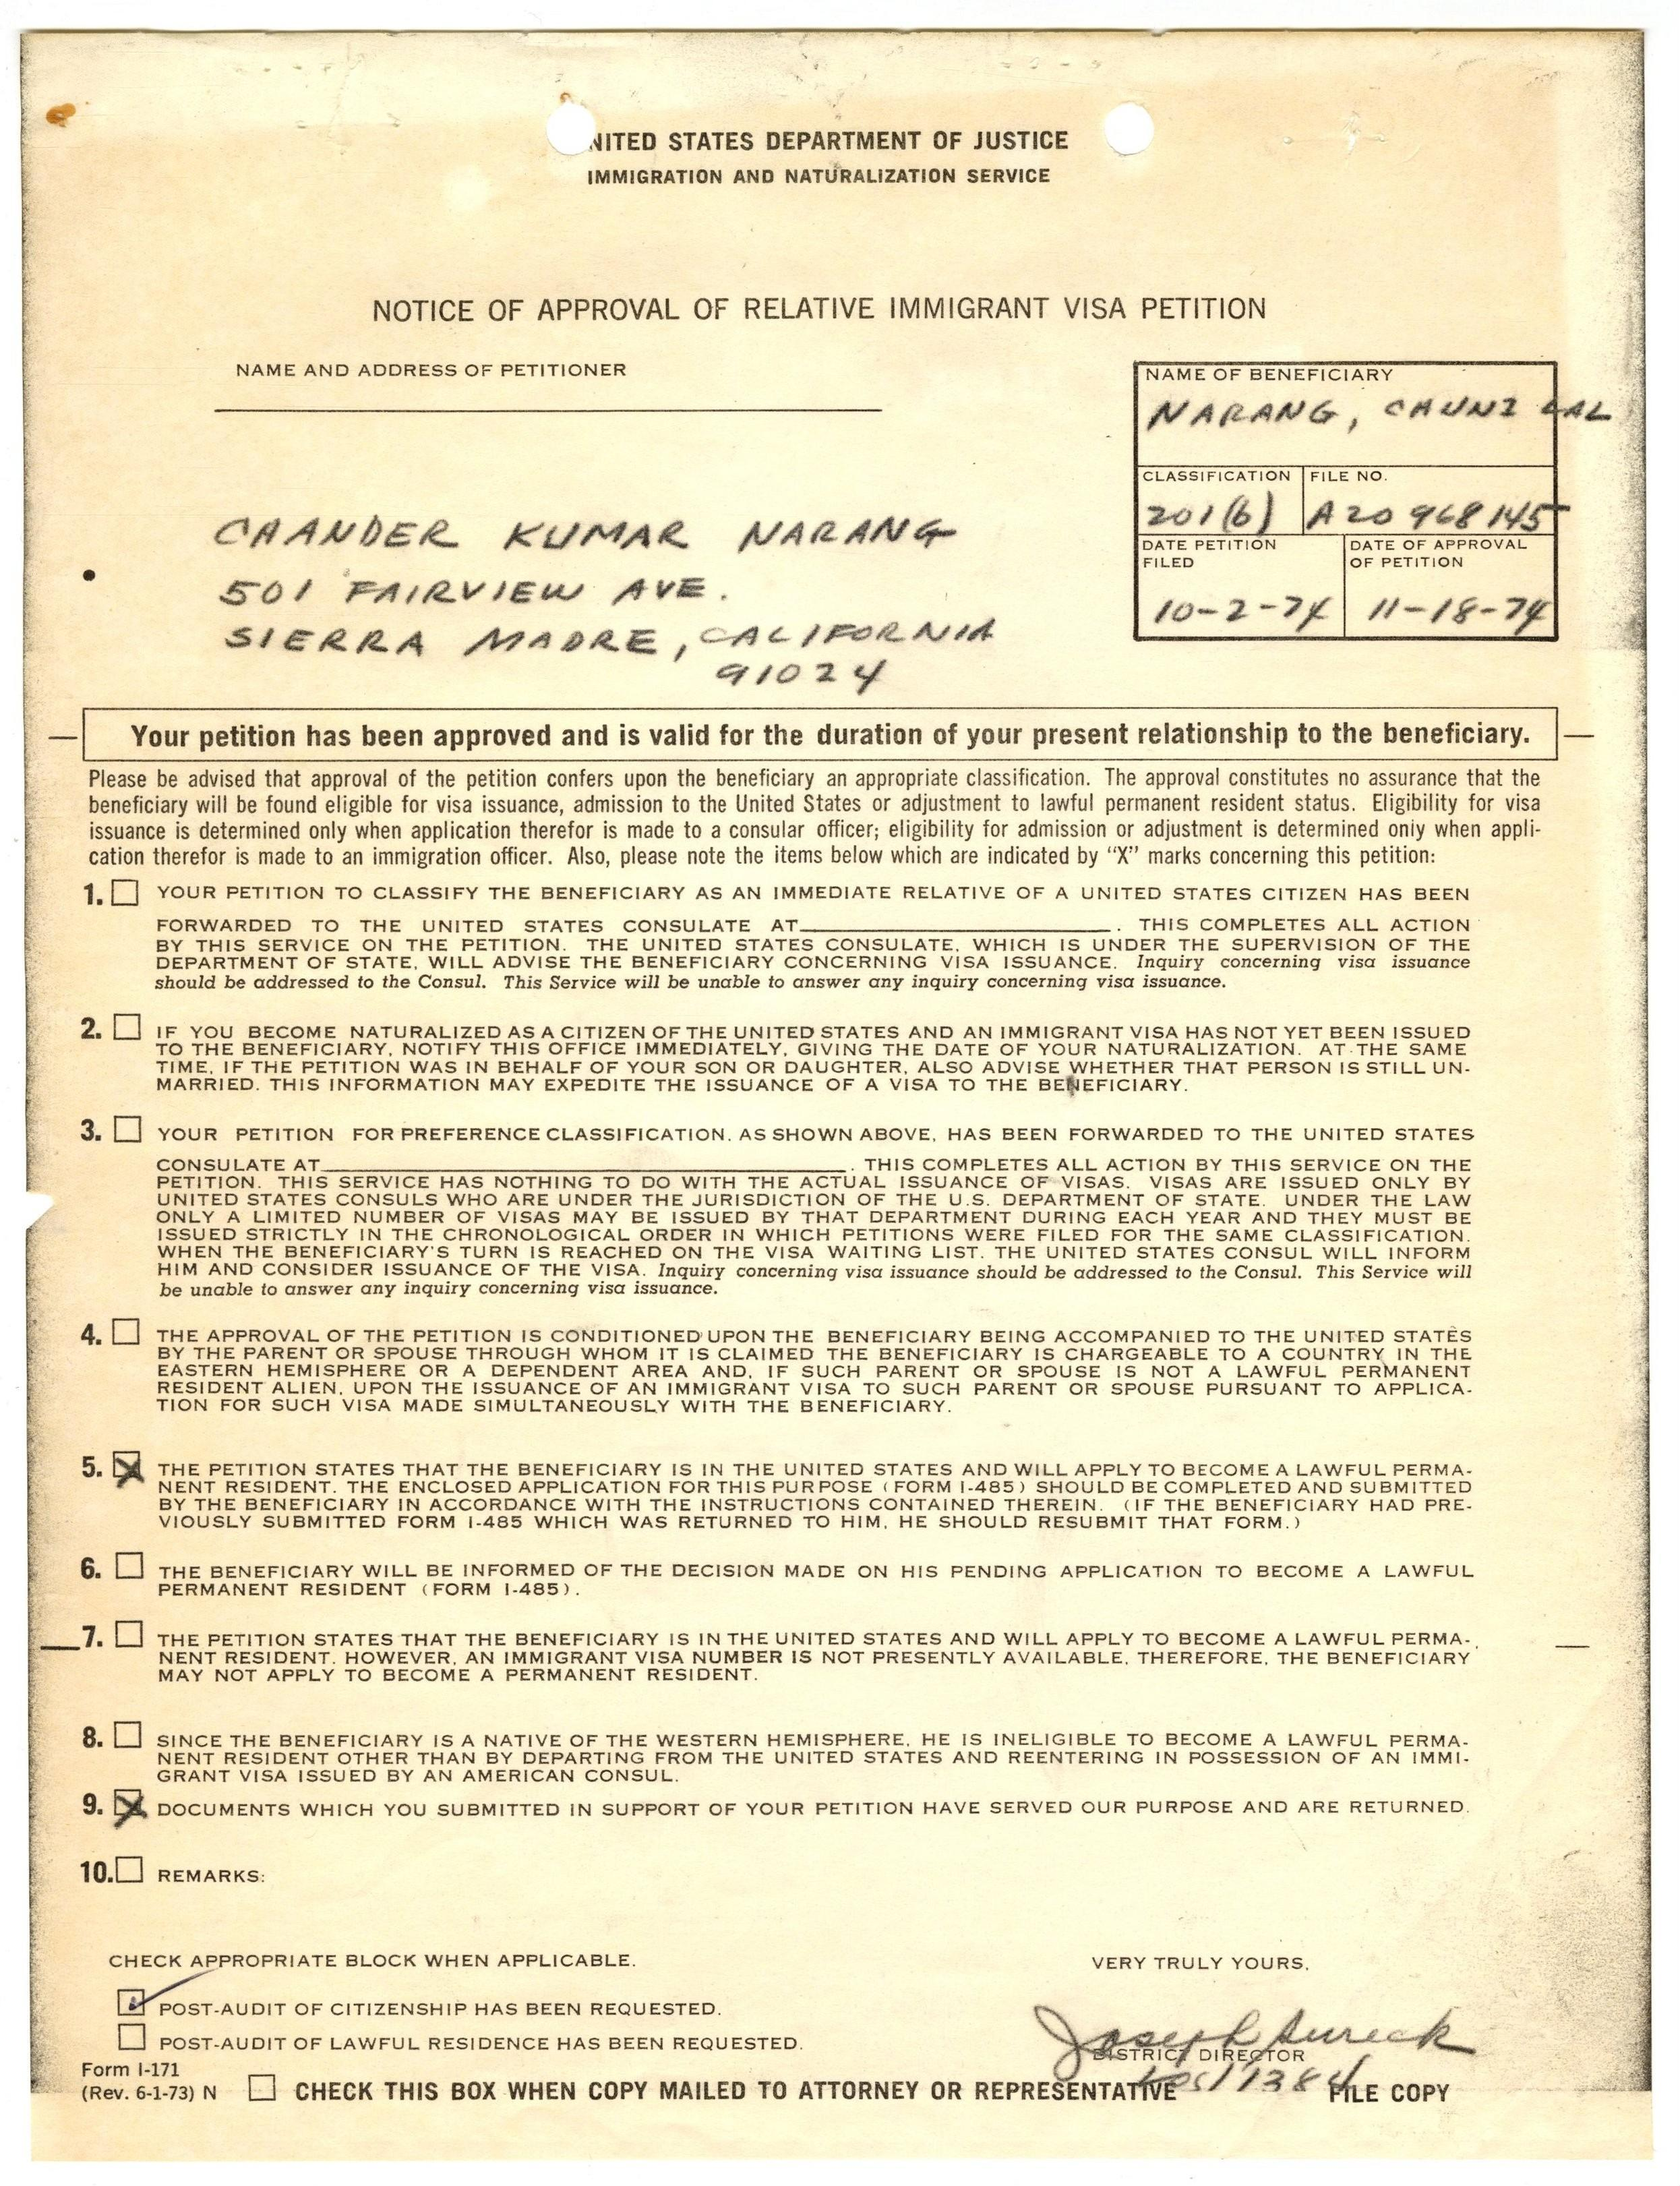 NITED STATES DEPARTMENT OF JUSTICE
IMMIGRATION AND NATURALIZATION SERVICE
NOTICE OF APPROVAL OF RELATIVE IMMIGRANT VISA PETITION
NAME AND ADDRESS OF PETITIONER
CHANDER KUMAR NARANG
501 FAIRVIEW AVE.
SIERRA MADRE, CALIFORNIA
91024
NAME OF BENEFICIARY
NARANG, CHUNI LAL
CLASSIFICATION FILE NO.
201(b) A20 968 145
DATE PETITION FILED DATE OF APPROVAL OF PETITION
10-2-74 11-18-74
Your petition has been approved and is valid for the duration of your present relationship to the beneficiary.
Please be advised that approval of the petition confers upon the beneficiary an appropriate classification. The approval constitutes no assurance that the
beneficiary will be found eligible for visa issuance, admission to the United States or adjustment to lawful permanent resident status. Eligibility for visa
issuance is determined only when application therefor is made to a consular officer; eligibility for admission or adjustment is determined only when appli-
cation therefor is made to an immigration officer. Also, please note the items below which are indicated by "X" marks concerning this petition:
1. YOUR PETITION TO CLASSIFY THE BENEFICIARY AS AN IMMEDIATE RELATIVE OF A UNITED STATES CITIZEN HAS BEEN
FORWARDED TO THE UNITED STATES CONSULATE AT . THIS COMPLETES ALL ACTION
BY THIS SERVICE ON THE PETITION. THE UNITED STATES CONSULATE, WHICH IS UNDER THE SUPERVISION OF THE
DEPARTMENT OF STATE, WILL ADVISE THE BENEFICIARY CONCERNING VISA ISSUANCE. Inquiry concerning visa issuance
should be addressed to the Consul. This Service will be unable to answer any inquiry concerning visa issuance.
2. IF YOU BECOME NATURALIZED AS A CITIZEN OF THE UNITED STATES AND AN IMMIGRANT VISA HAS NOT YET BEEN ISSUED
TO THE BENEFICIARY, NOTIFY THIS OFFICE IMMEDIATELY, GIVING THE DATE OF YOUR NATURALIZATION. AT THE SAME
TIME, IF THE PETITION WAS IN BEHALF OF YOUR SON OR DAUGHTER, ALSO ADVISE WHETHER THAT PERSON IS STILL UN-
MARRIED. THIS INFORMATION MAY EXPEDITE THE ISSUANCE OF A VISA TO THE BENEFICIARY.
3. YOUR PETITION FOR PREFERENCE CLASSIFICATION, AS SHOWN ABOVE, HAS BEEN FORWARDED TO THE UNITED STATES
CONSULATE AT . THIS COMPLETES ALL ACTION BY THIS SERVICE ON THE
PETITION. THIS SERVICE HAS NOTHING TO DO WITH THE ACTUAL ISSUANCE OF VISAS. VISAS ARE ISSUED ONLY BY
UNITED STATES CONSULS WHO ARE UNDER THE JURISDICTION OF THE U.S. DEPARTMENT OF STATE. UNDER THE LAW
ONLY A LIMITED NUMBER OF VISAS MAY BE ISSUED BY THAT DEPARTMENT DURING EACH YEAR AND THEY MUST BE
ISSUED STRICTLY IN THE CHRONOLOGICAL ORDER IN WHICH PETITIONS WERE FILED FOR THE SAME CLASSIFICATION.
WHEN THE BENEFICIARY'S TURN IS REACHED ON THE VISA WAITING LIST, THE UNITED STATES CONSUL WILL INFORM
HIM AND CONSIDER ISSUANCE OF THE VISA. Inquiry concerning visa issuance should be addressed to the Consul. This Service will
be unable to answer any inquiry concerning visa issuance.
4. THE APPROVAL OF THE PETITION IS CONDITIONED UPON THE BENEFICIARY BEING ACCOMPANIED TO THE UNITED STATES
BY THE PARENT OR SPOUSE THROUGH WHOM IT IS CLAIMED THE BENEFICIARY IS CHARGEABLE TO A COUNTRY IN THE
EASTERN HEMISPHERE OR A DEPENDENT AREA AND, IF SUCH PARENT OR SPOUSE IS NOT A LAWFUL PERMANENT
RESIDENT ALIEN, UPON THE ISSUANCE OF AN IMMIGRANT VISA TO SUCH PARENT OR SPOUSE PURSUANT TO APPLICA-
TION FOR SUCH VISA MADE SIMULTANEOUSLY WITH THE BENEFICIARY.
5. X THE PETITION STATES THAT THE BENEFICIARY IS IN THE UNITED STATES AND WILL APPLY TO BECOME A LAWFUL PERMA-
NENT RESIDENT. THE ENCLOSED APPLICATION FOR THIS PURPOSE (FORM I-485) SHOULD BE COMPLETED AND SUBMITTED
BY THE BENEFICIARY IN ACCORDANCE WITH THE INSTRUCTIONS CONTAINED THEREIN. (IF THE BENEFICIARY HAD PRE-
VIOUSLY SUBMITTED FORM I-485 WHICH WAS RETURNED TO HIM, HE SHOULD RESUBMIT THAT FORM.)
6. THE BENEFICIARY WILL BE INFORMED OF THE DECISION MADE ON HIS PENDING APPLICATION TO BECOME A LAWFUL
PERMANENT RESIDENT (FORM I-485).
7. THE PETITION STATES THAT THE BENEFICIARY IS IN THE UNITED STATES AND WILL APPLY TO BECOME A LAWFUL PERMA-
NENT RESIDENT. HOWEVER, AN IMMIGRANT VISA NUMBER IS NOT PRESENTLY AVAILABLE, THEREFORE, THE BENEFICIARY
MAY NOT APPLY TO BECOME A PERMANENT RESIDENT.
8. SINCE THE BENEFICIARY IS A NATIVE OF THE WESTERN HEMISPHERE, HE IS INELIGIBLE TO BECOME A LAWFUL PERMA-
NENT RESIDENT OTHER THAN BY DEPARTING FROM THE UNITED STATES AND REENTERING IN POSSESSION OF AN IMMI-
GRANT VISA ISSUED BY AN AMERICAN CONSUL.
9. X DOCUMENTS WHICH YOU SUBMITTED IN SUPPORT OF YOUR PETITION HAVE SERVED OUR PURPOSE AND ARE RETURNED.
10. REMARKS:
CHECK APPROPRIATE BLOCK WHEN APPLICABLE.
POST-AUDIT OF CITIZENSHIP HAS BEEN REQUESTED.
POST-AUDIT OF LAWFUL RESIDENCE HAS BEEN REQUESTED.
VERY TRULY YOURS,
Joseph Sureck
DISTRICT DIRECTOR
Form I-171
(Rev. 6-1-73) N CHECK THIS BOX WHEN COPY MAILED TO ATTORNEY OR REPRESENTATIVE FILE COPY